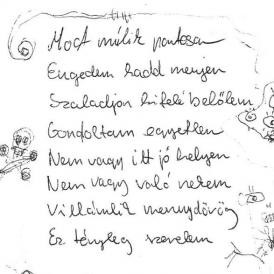 Most múlik pontosan
Engedem hadd menjen
Szaladjon kifelé belőlem
Gondoltam egyetlen
Nem vagy itt jó helyen
Nem vagy való nekem
Villámlik mennydörög
Ez tényleg szerelem